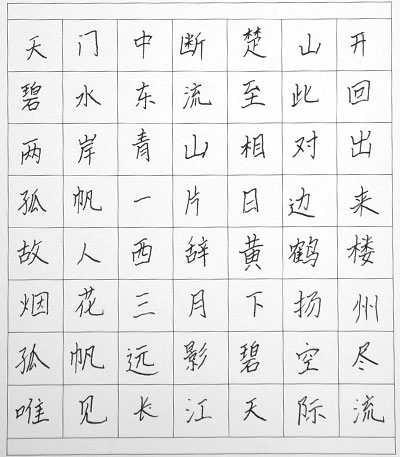 天门中断楚山开
碧水东流至此回
两岸青山相对出
孤帆一片日边来
故人西辞黄鹤楼
烟花三月下扬州
孤帆远影碧空尽
唯见长江天际流